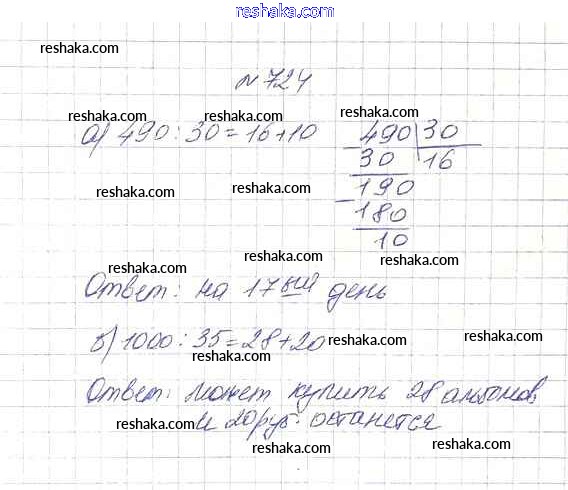 www.reshaka.ru
reshaka.com
reshaka.com
№ 724
reshaka.com
reshaka.com
reshaka.com
а) 490 : 30 = 16 + 10
490 30
30 16
190
180
10
reshaka.com
reshaka.com
reshaka.com
reshaka.com
reshaka.com
reshaka.com
Ответ: на 17ый день
reshaka.com
б) 1000 : 35 = 28 + 20
reshaka.com
reshaka.com
reshaka.com
reshaka.com
Ответ: может купить 28 альбомов
и 20 руб. останется
reshaka.com
reshaka.com
reshaka.com
reshaka.com